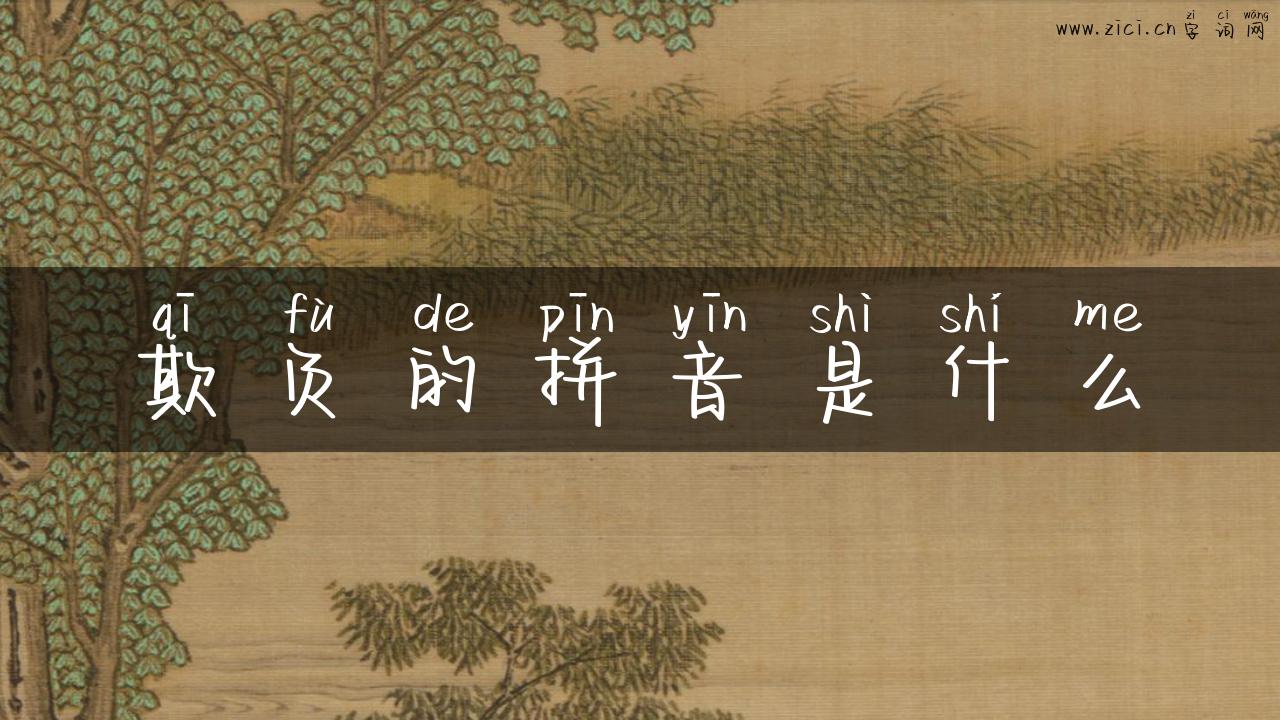 zì cí wǎng
www.zici.cn字词网
qī fù de pīn yīn shì shí me
欺负的拼音是什么